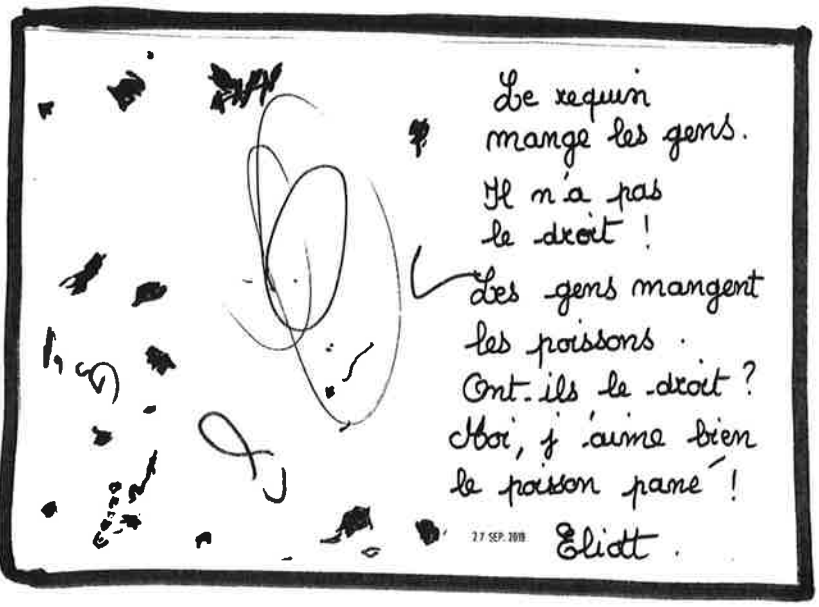 Le requin
mange les gens.
Il n'a pas
le droit !
Les gens mangent
les poissons.
Ont-ils le droit ?
Moi, j'aime bien
le poisson pané !
27 SEP. 2019
Eliott.